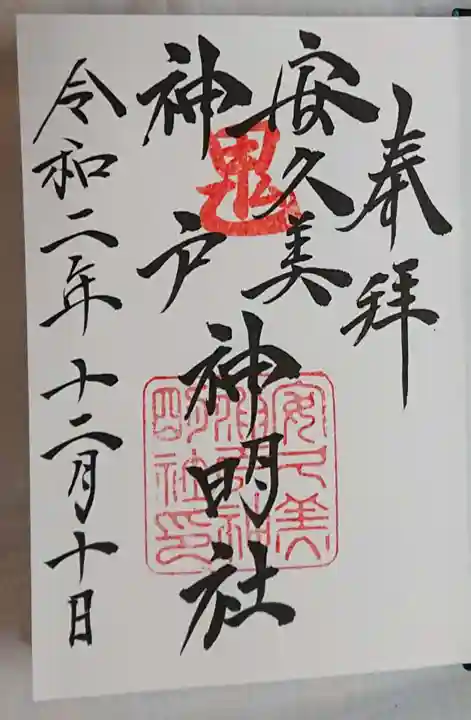 奉拝
安久美
神戸
神明社
令和二年十二月十日
鬼
安久美
神戸神
明社印